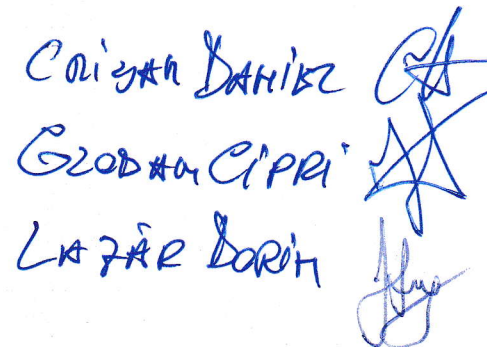 Crișan Daniel
Globan Cipri
Lazăr Dorin